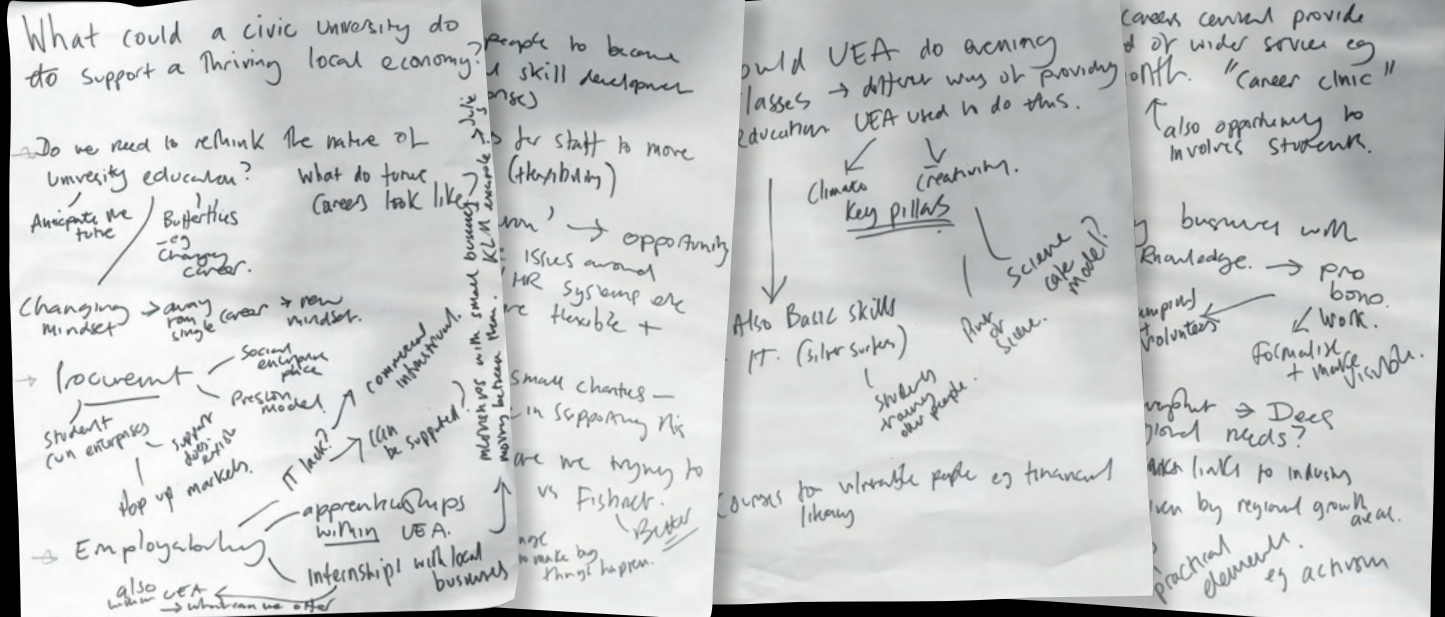 What could a civic university do
to support a thriving local economy?
Do we need to rethink the nature of
university education?
What do future
careers look like?
Anticipate the
future
Butterflies
- eg
changing
career.
Changing
mindset
→ away
from
single
career → new
mindset.
→ Procurement
Social
enterprise
Preston
model.
Student
run enterprises
support
does
exist
Pop up markets.
IT lack?
commercial
can
be supported?
→ Employability
apprenticeships
within UEA.
Internships with local
businesses
also
within UEA
→ what can we offer
with small businesses
moving between them. KLM example
people to become
skill development
for staff to move
(flexibility)
→ opportunity
issues around
HR systems etc
flexible +
small charities —
in supporting this
are we trying to
vs Fishnet.
Better
to make big
things happen.
ould UEA do evening
lasses → different ways of providing
education UEA used to do this.
Climate
Creativity.
Key pillars
Science
cafe
model?
Pint
of
Science.
Also Basic Skills
IT. (silver surfers)
Students
training
older people.
Courses for vulnerable people eg financial
literacy
careers central provide
d of wider service eg
onth. "Career clinic"
also opportunity to
involve students.
business with
knowledge. → pro
bono.
work.
volunteers
formalise
+ make
visible.
→ Does
needs?
links to industry
ven by regional growth
areas.
practical
elements.
eg activism